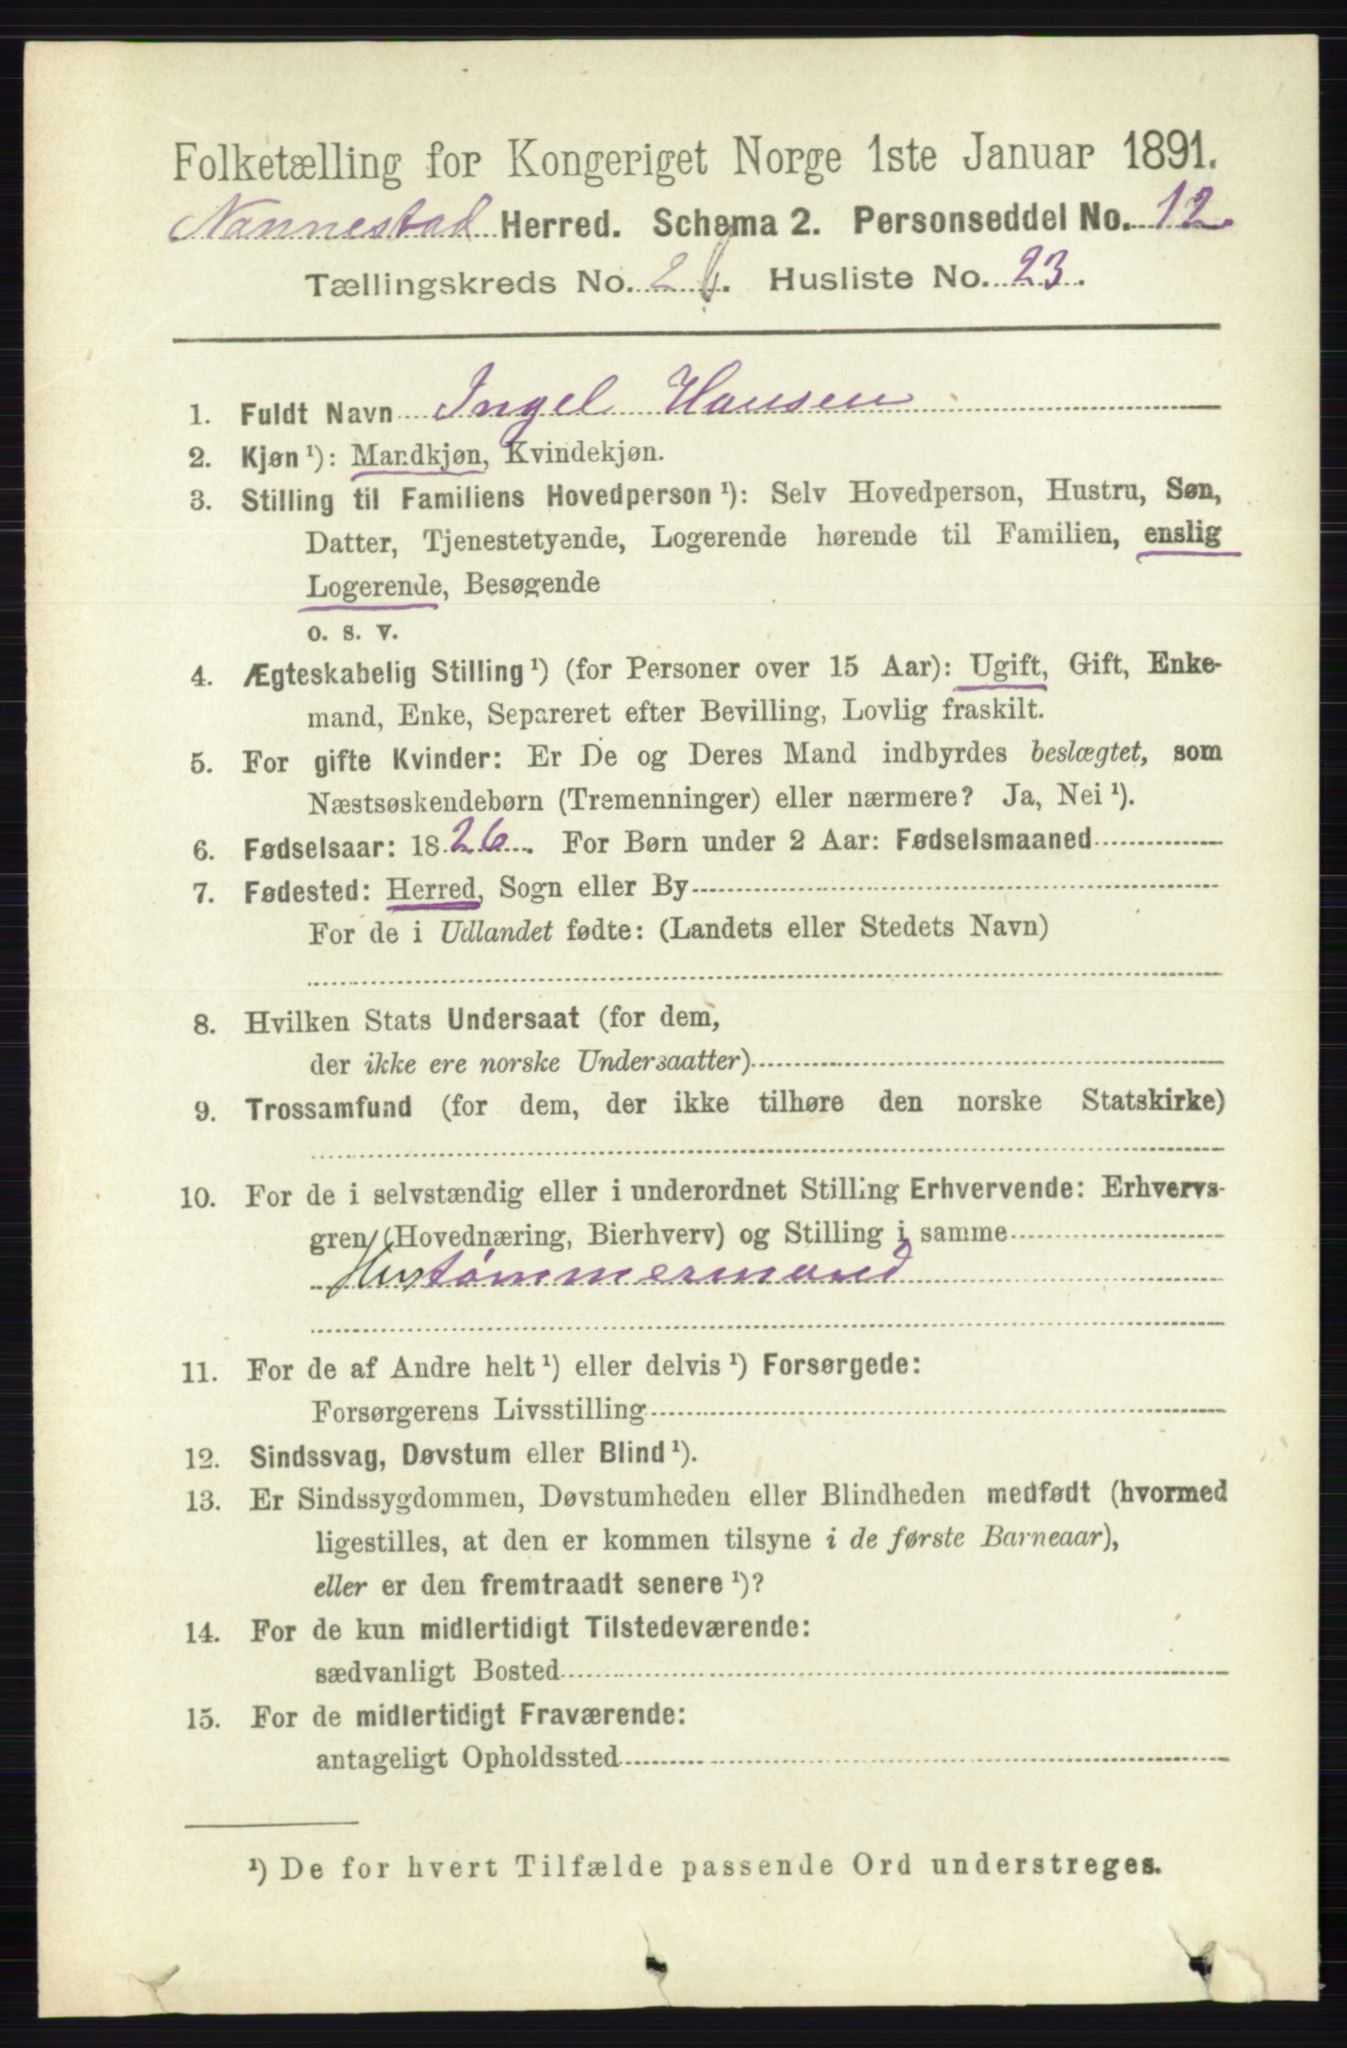 Folketælling for Kongeriget Norge 1ste Januar 1891.
Nannestad Herred. Schema 2. Personseddel No. 12
Tællingskreds No. 2. Husliste No. 23.
1. Fuldt Navn Ingel Hansen
2. Kjøn ¹): Mandkjøn, Kvindekjøn.
3. Stilling til Familiens Hovedperson ¹): Selv Hovedperson, Hustru, Søn,
Datter, Tjenestetyende, Logerende hørende til Familien, enslig
Logerende, Besøgende
o. s. v.
4. Ægteskabelig Stilling ¹) (for Personer over 15 Aar): Ugift, Gift, Enke-
mand, Enke, Separeret efter Bevilling, Lovlig fraskilt.
5. For gifte Kvinder: Er De og Deres Mand indbyrdes beslægtet, som
Næstsøskendebørn (Tremenninger) eller nærmere? Ja, Nei ¹).
6. Fødselsaar: 1826. For Børn under 2 Aar: Fødselsmaaned
7. Fødested: Herred, Sogn eller By
For de i Udlandet fødte: (Landets eller Stedets Navn)
8. Hvilken Stats Undersaat (for dem,
der ikke ere norske Undersaatter)
9. Trossamfund (for dem, der ikke tilhøre den norske Statskirke)
10. For de i selvstændig eller i underordnet Stilling Erhvervende: Erhvervs-
gren (Hovednæring, Bierhverv) og Stilling i samme
Hustømmermand
11. For de af Andre helt ¹) eller delvis ¹) Forsørgede:
Forsørgerens Livsstilling
12. Sindssvag, Døvstum eller Blind ¹).
13. Er Sindssygdommen, Døvstumheden eller Blindheden medfødt (hvormed
ligestilles, at den er kommen tilsyne i de første Barneaar),
eller er den fremtraadt senere ¹)?
14. For de kun midlertidigt Tilstedeværende:
sædvanligt Bosted
15. For de midlertidigt Fraværende:
antageligt Opholdssted
¹) De for hvert Tilfælde passende Ord understreges.